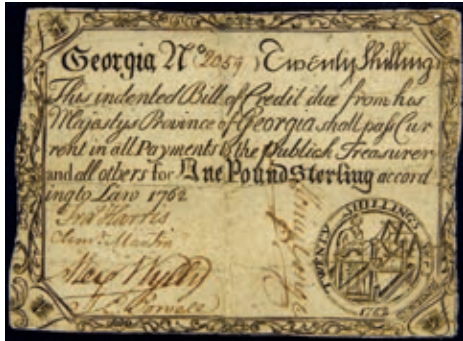 Georgia No 2059 Twenty Shilling
This indented Bill of Credit due from his
Majestys Province of Georgia shall pass Cur
rent in all Payments to the Publick Treasurer
and all others for One Pound Sterling accord
ing to Law 1762
Fra Harris
Clemt Martin
Alexr Wylly
TWENTY SHILLINGS
1762